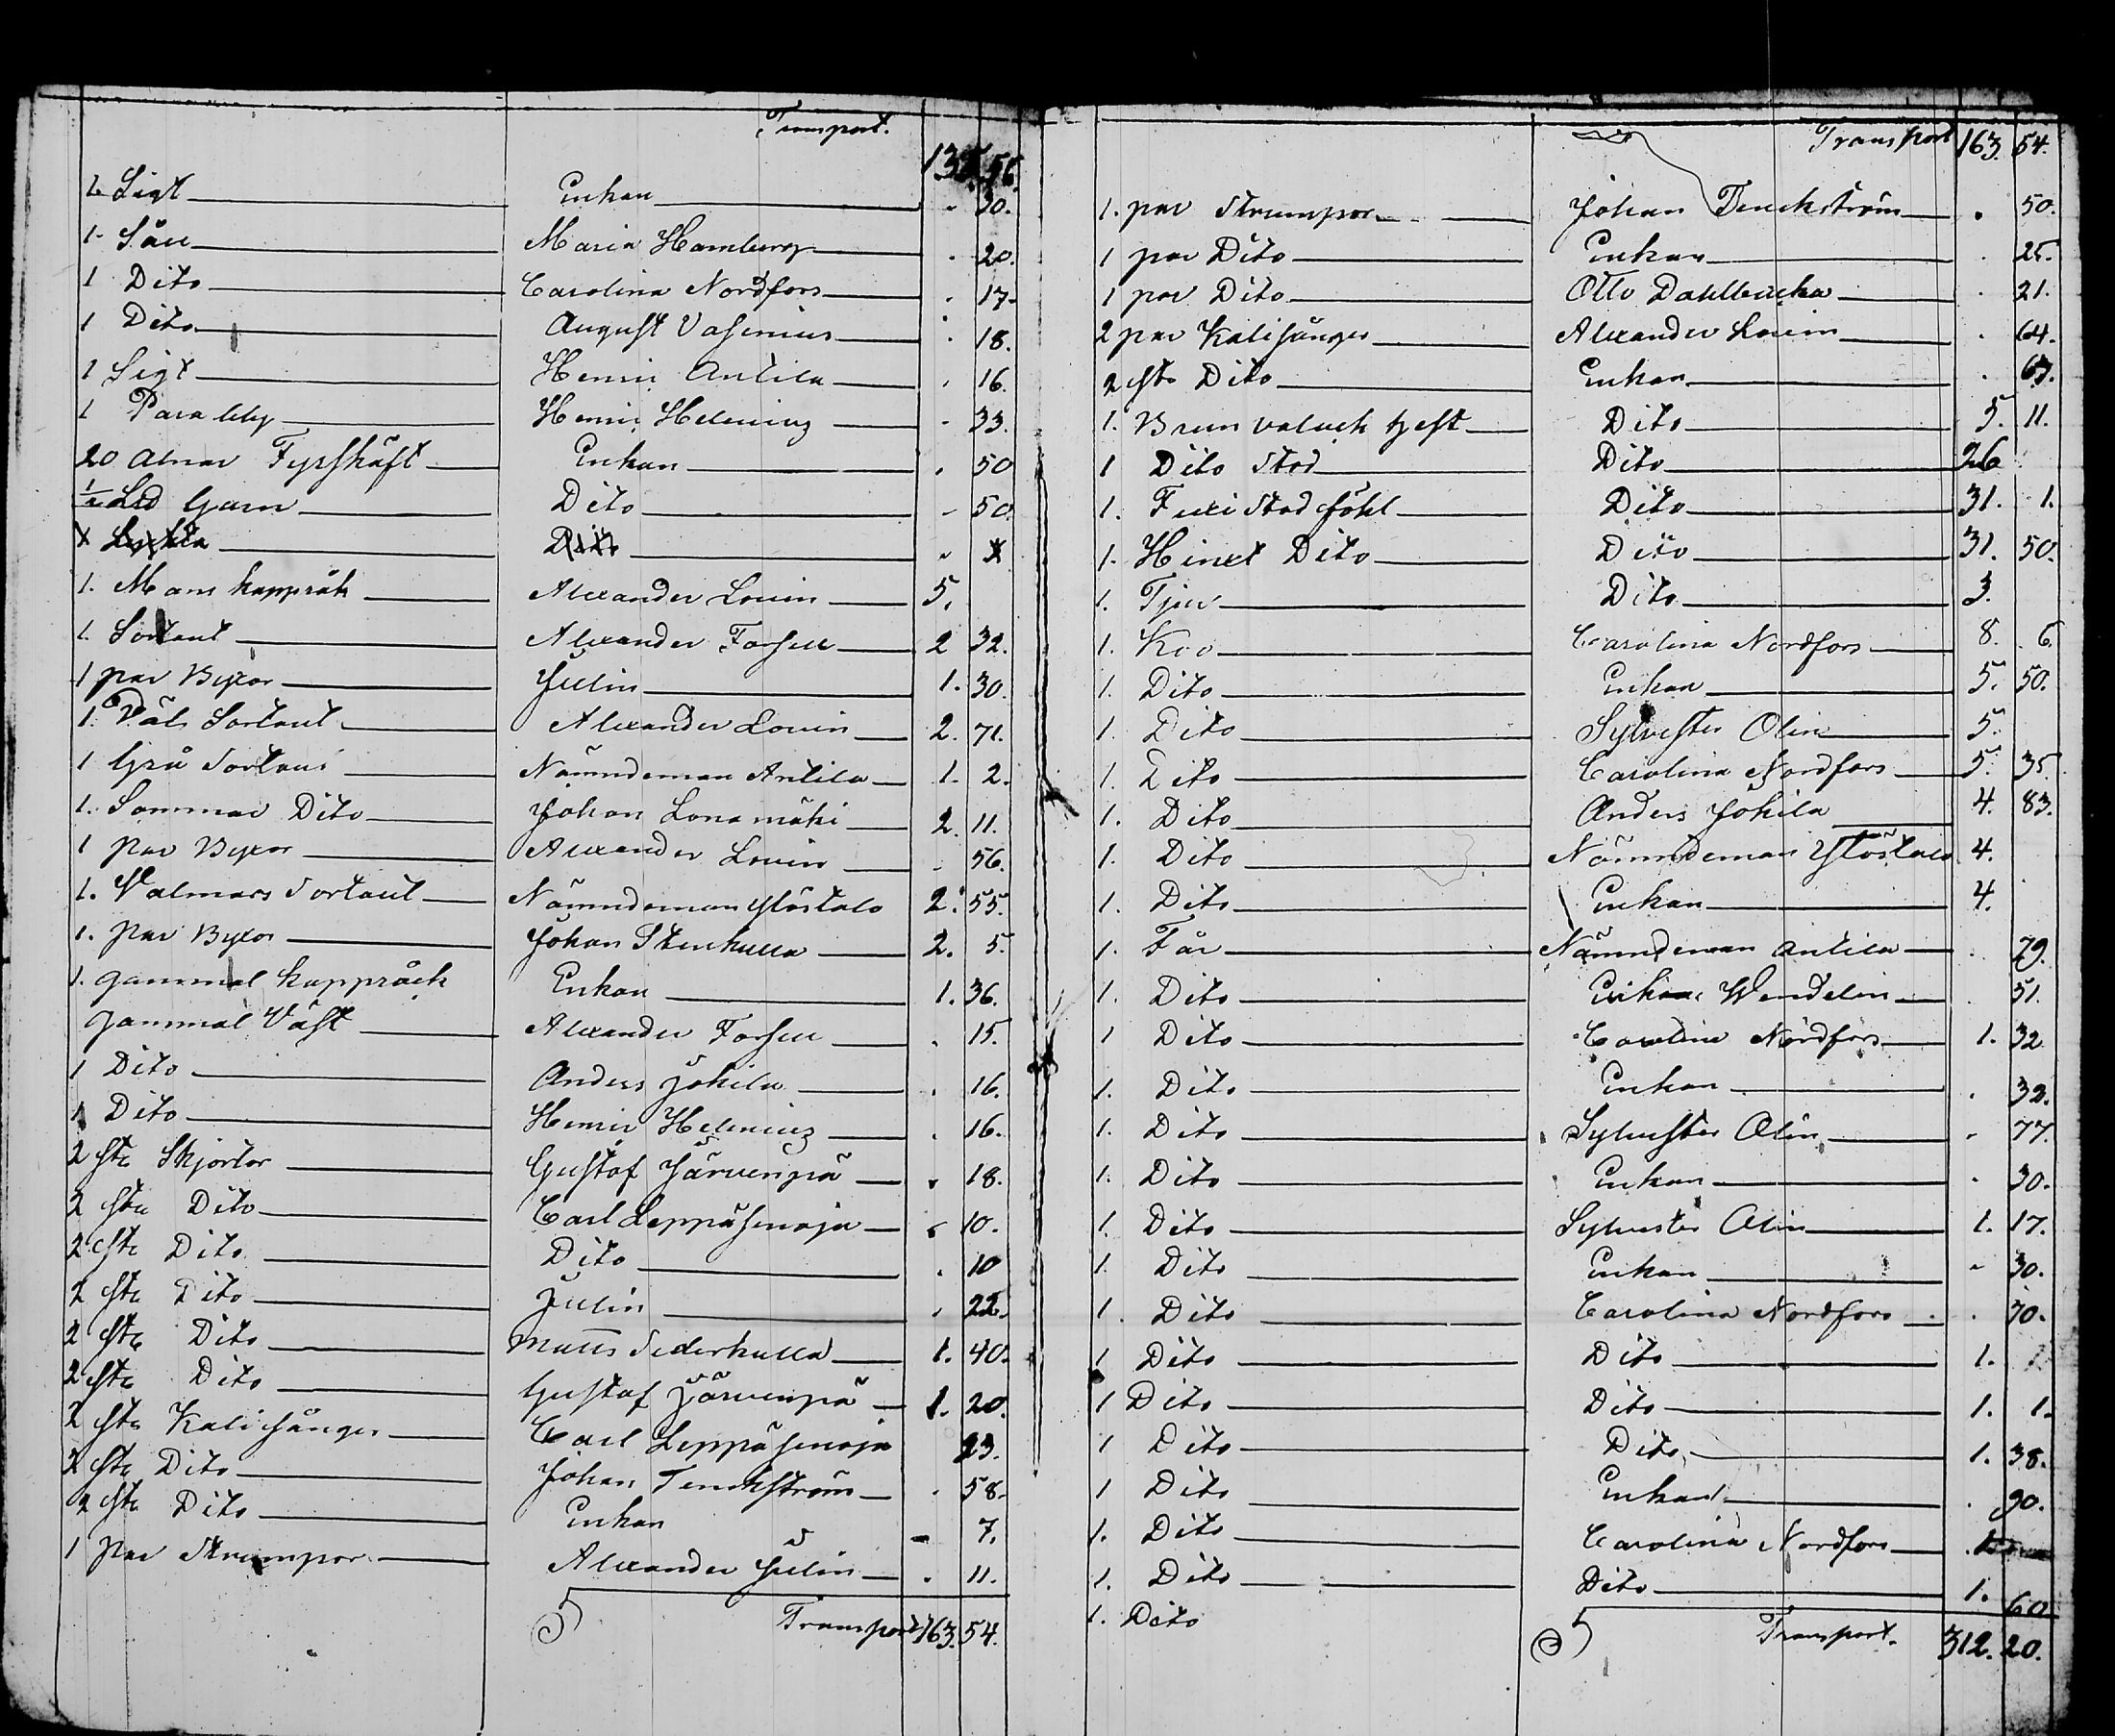 Transport.
1 Sigt Enkan . 30.
1. Såll Maria Hamberg . 20.
1 Dito Carolina Nordfors . 17.
1 Dito August Vasenius . 18.
1 Sigt Henric Antila . 16.
1 Henric Helenius . 33.
20 Alnar Fyrskäft Enkan . 50
½ Garn Dito . 50.
1. Mans kappråk Alexander Lovin 5.
1. Sortout Alexander Forsell 2 32.
1 par Byxor Julin 1. 30.
1. Sortout Alexander Lovin 2. 71.
1 Grå Sortout Nämndeman Antila 1. 2.
1. Sommar Dito Johan Lonamäki 2. 11.
1 par Byxor Alexander Lovin . 56.
1. Valmars Sortout Nämndeman Ylöstalo 2. 55.
1. par Byxor Johan Stenkulla 2. 5.
1. gammal kappråck Enkan 1. 36.
gammal Väst Alexander Forsell . 15.
1 Dito Anders Jokila . 16.
1 Dito Henric Helenius . 16.
2 stc Skjortor Gustaf Järvenpä . 18.
2 stc Dito Carl Leppäsenoja . 10.
2 stc Dito Dito . 10
2 stc Dito Julin . 22.
2 stc Dito Matts Sederkulla 1. 40.
2 stc Dito Gustaf Järvenpä 1. 20.
2 stc Kalisånger Carl Leppäsenoja 23.
2 stc Dito Johan Tenckström . 58.
2 stc Dito Enkan 7.
1 par Strumpor Alexander Julin . 11.
Transport 163. 54.
Transport 163. 54.
1. par Strumpor Johan Tenckström . 50.
1 par Dito Enkan . 25.
1 par Dito Otto Dahlbacka . 21.
2 par Kalisånger Alexander Lovin . 64.
2 stc Dito Enkan .
1. Brun valack hest Dito 5. 11.
1 Dito Stod Dito 26
1. Stod föhl Dito 31. 1.
1. Hinxt Dito Dito 31. 50.
1. Tjur Dito 3.
1. Koo Carolina Nordfors 8. 6.
1. Dito Enkan 5. 50.
1. Dito Sylvester Olin 5.
1. Dito Carolina Nordfors 5. 35.
1. Dito Anders Jokila 4. 83.
1. Dito Nämndeman Ylöstalo 4.
1. Dito Enkan 4.
1. Får Nämndeman Antila . 79.
1. Dito Enkan Wendelin . 51.
1 Dito Carolina Nordfors 1. 32
1. Dito Enkan . 32.
1. Dito Sylvester Olin . 77.
1. Dito Enkan . 30.
1. Dito Sylvester Olin 1. 17.
1. Dito Enkan . 30.
1. Dito Carolina Nordfors . 70.
1 Dito Dito 1.
1 Dito Dito 1. 1.
1 Dito Dito 1. 38.
1 Dito Enkan . 90.
1. Dito Carolina Nordfors
1. Dito Dito 1. 60
1. Dito
Transport. 312. 20.